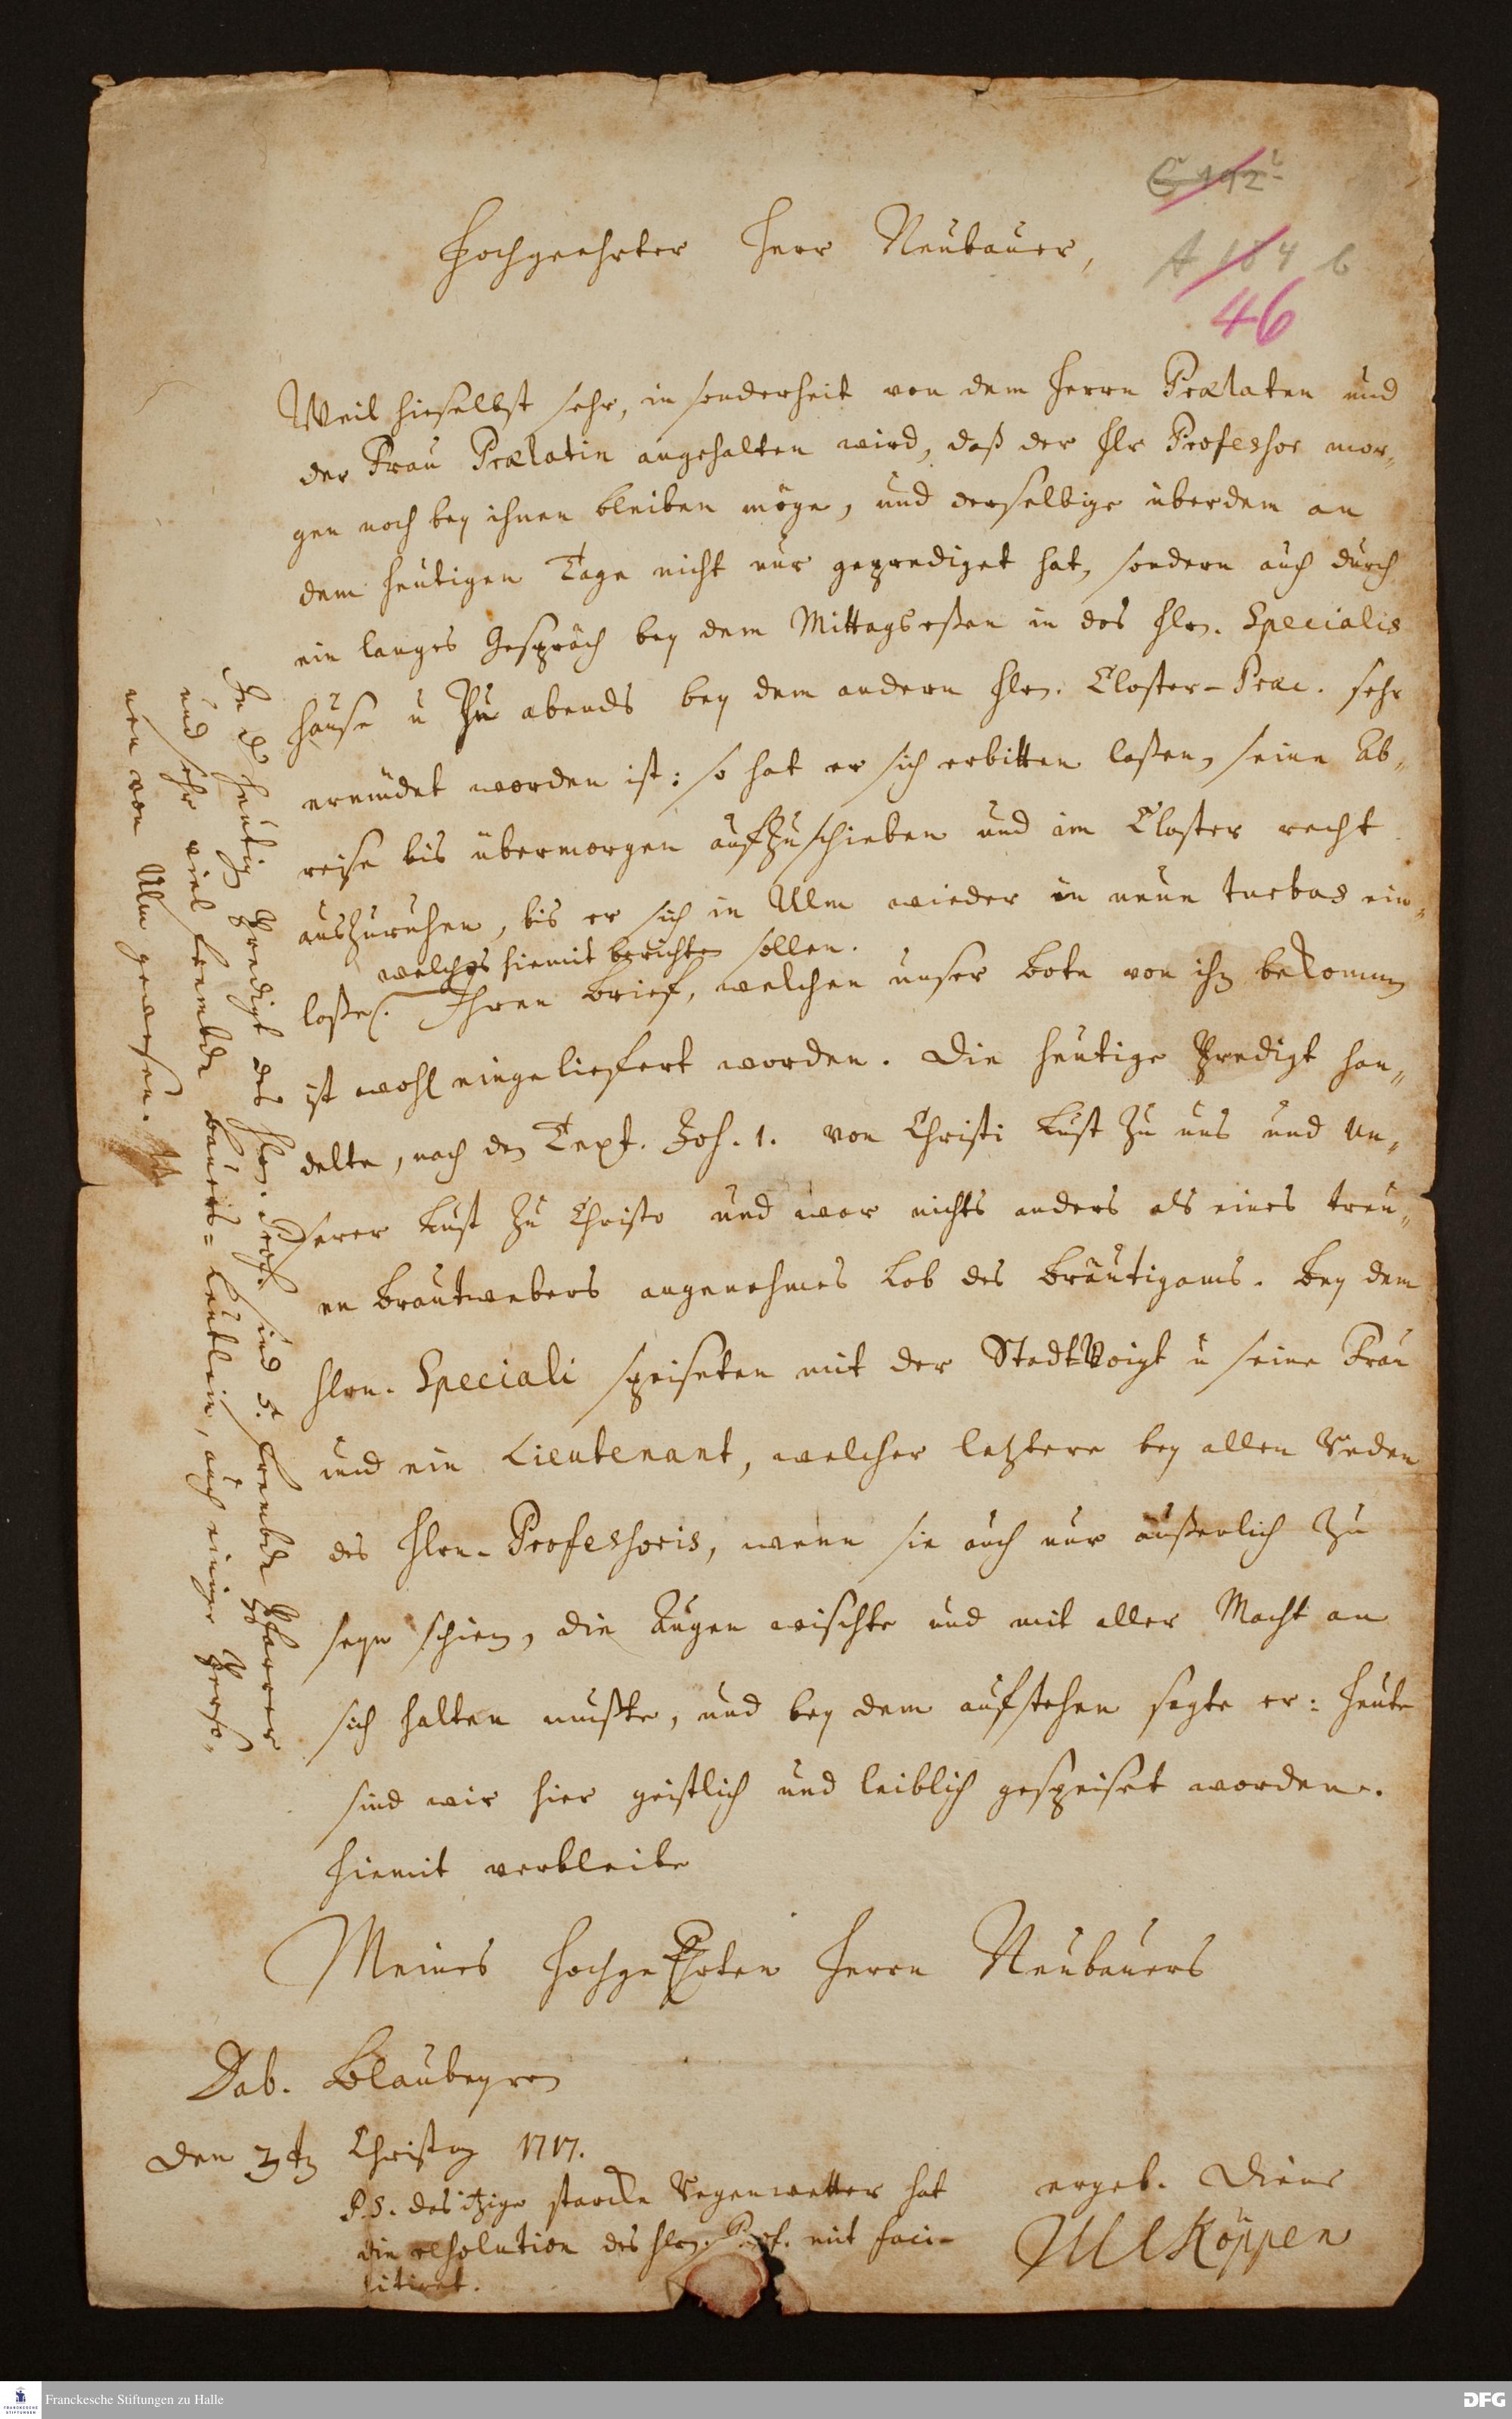 C 192
A 184 b
46
Hochgeehrter Herr Neubauer,
Weil hieselbst sehr, in sonderheit von dem Herrn Prælaten und
der Frau Prælatin angehalten wird, daß der Hr Professor mor-
gen noch bey ihnen bleiben möge, und derselbige überdem an
dem heutigen Tage nicht nur geprediget hat, sondern auch durch
ein langes Gespräch bey dem Mittagseßen in des Hrn. Specialis
Hause u zu abends bey dem andern Hrn. Closter-Præc. sehr
ermüdet worden ist: so hat er sich erbitten laßen, seine Ab-
reise bis übermorgen aufzuschieben und im Closter recht
auszuruhen, bis er sich in Ulm wieder in neue turbas ein-
welches hiemit berichten sollen.
laße. Ihren Brief, welchen unser Bote von ihm bekommen
ist wohl eingeliefert worden. Die heutige Predigt han-
delte, nach dem Text. Joh. 1. von Christi Lust zu uns und un-
serer Lust zu Christo und war nichts anders als eines treu-
en Brautwerbers angenehmes Lob des Bräutigams. Bey dem
Hrn. Speciali speiseten mit der StadtVoigt u seine Frau
und ein Lieutenant, welcher letztere bey allen Reden
des Hrn. Professoris, wenn sie auch nur äußerlich zu
seyn schien, die Augen wischte und mit aller Macht an
sich halten mußte, und bey dem aufstehen sagte er: heute
sind wir hier geistlich und leiblich gespeiset worden.
Hiemit verbleibe
Meines HochgeEhrten Herrn Neubauers
Dab. Blaubeyren
den 3ten Christag 1717.
P.S. das itzige starcke Regenwetter hat
die resolution des Hrn. Prof. mit faci-
litiret.
ergeb. Diener
Köppen
In der heutigen Predigt des Hrn. Prof. sind 5. frembde Pfarrer
und sehr viel frembde Bauers-Leutlein, auch einige Perso-
nen von Ulm gewesen.
Franckesche Stiftungen zu Halle
FRANCKESCHE STIFTUNGEN
DFG